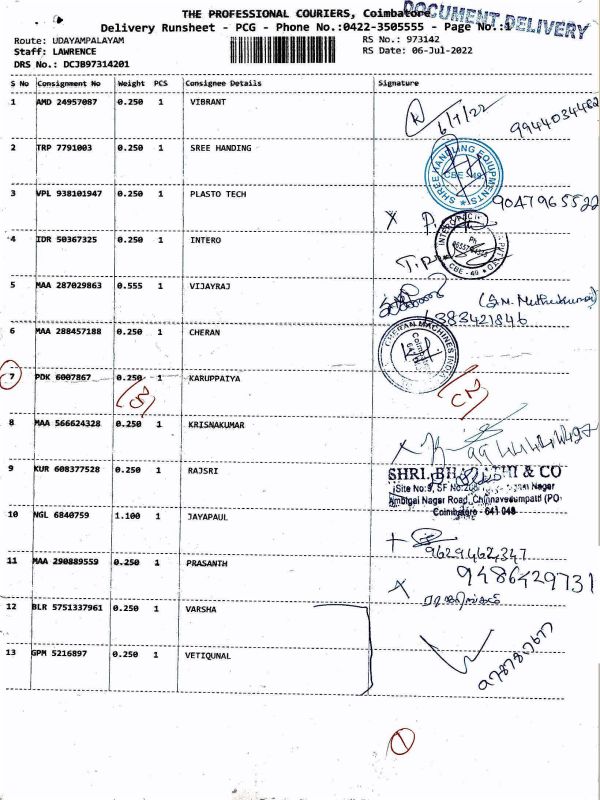 THE PROFESSIONAL COURIERS, Coimbatore
DOCUMENT DELIVERY
Delivery Runsheet - PCG - Phone No.:0422-3505555 - Page No.:1
Route: UDAYAMPALAYAM
RS No.: 973142
Staff: LAWRENCE
RS Date: 06-Jul-2022
DRS No.: DCJB97314201
S No Consignment No Weight PCS Consignee Details Signature
1 AMD 24957087 0.250 1 VIBRANT
6/7/22 9944034462
2 TRP 7791003 0.250 1 SREE HANDING
SHREE HANDLING EQUIPMENTS
CBE - 49
3 VPL 938101947 0.250 1 PLASTO TECH
9047965522
4 IDR 50367325 0.250 1 INTERO
CBE - 49
5 MAA 287029863 0.555 1 VIJAYRAJ
6383421846
6 MAA 288457188 0.250 1 CHERAN
CHERAN MACHINES INDIA
7 PDK 6007867 0.250 1 KARUPPAIYA
8 MAA 566624328 0.250 1 KRISNAKUMAR
9 KUR 608377528 0.250 1 RAJSRI
& CO
Site No:9, SF No:
Nagar
Ambigai Nagar Road, Chinnavedampatti (PO)
Coimbatore - 641 049
10 NGL 6840759 1.100 1 JAYAPAUL
9629462347
11 MAA 290889559 0.250 1 PRASANTH
9486429731
12 BLR 5751337961 0.250 1 VARSHA
13 GPM 5216897 0.250 1 VETIQUNAL
1